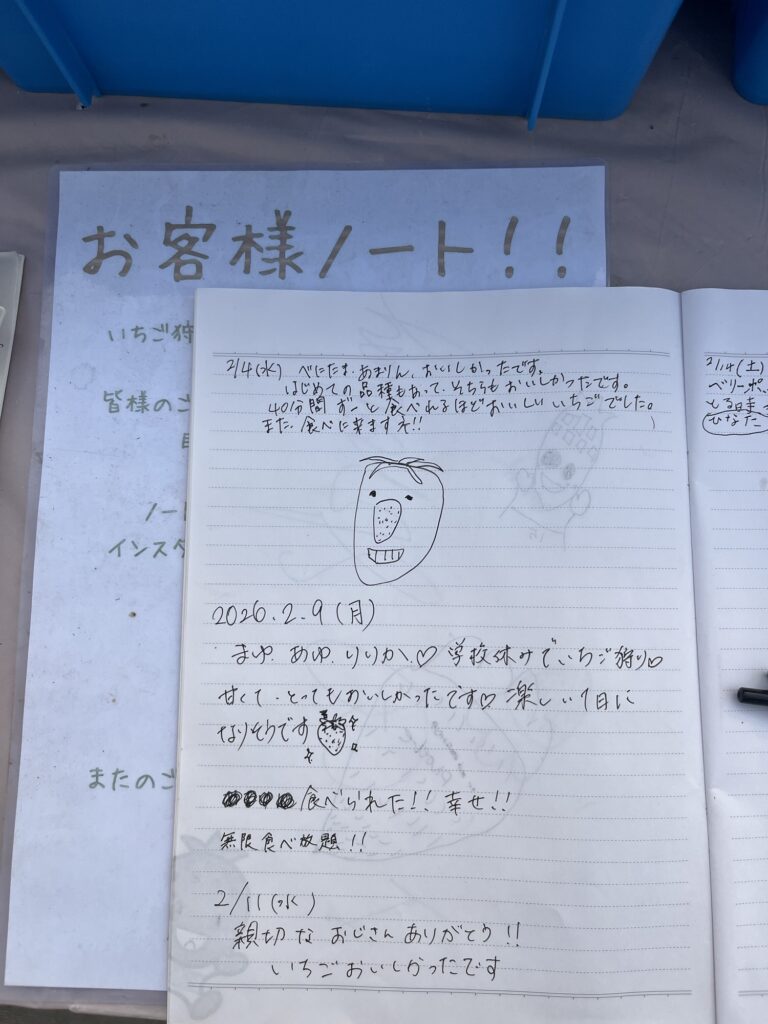 お客様ノート！！
いちご狩
皆様のご
ノー
インスタ
またのご
2/4(水) べにたま、あまりん、おいしかったです。
はじめての品種もあって、そちらもおいしかったです。
40分間 ずーと食べれるほどおいしいいちごでした。
また、食べに来ます!!
2026.2.9(月)
まゆ、あゆ、りりか♡ 学校休みでいちご狩り♡
甘くて、とってもおいしかったです♡ 楽しい1日に
なりそうです
食べられた!! 幸せ!!
無限食べ放題!!
2/11(水)
親切な おじさん ありがとう!!
いちごおいしかったです
2/14(土)
ベリーポ
とる時
ひなた